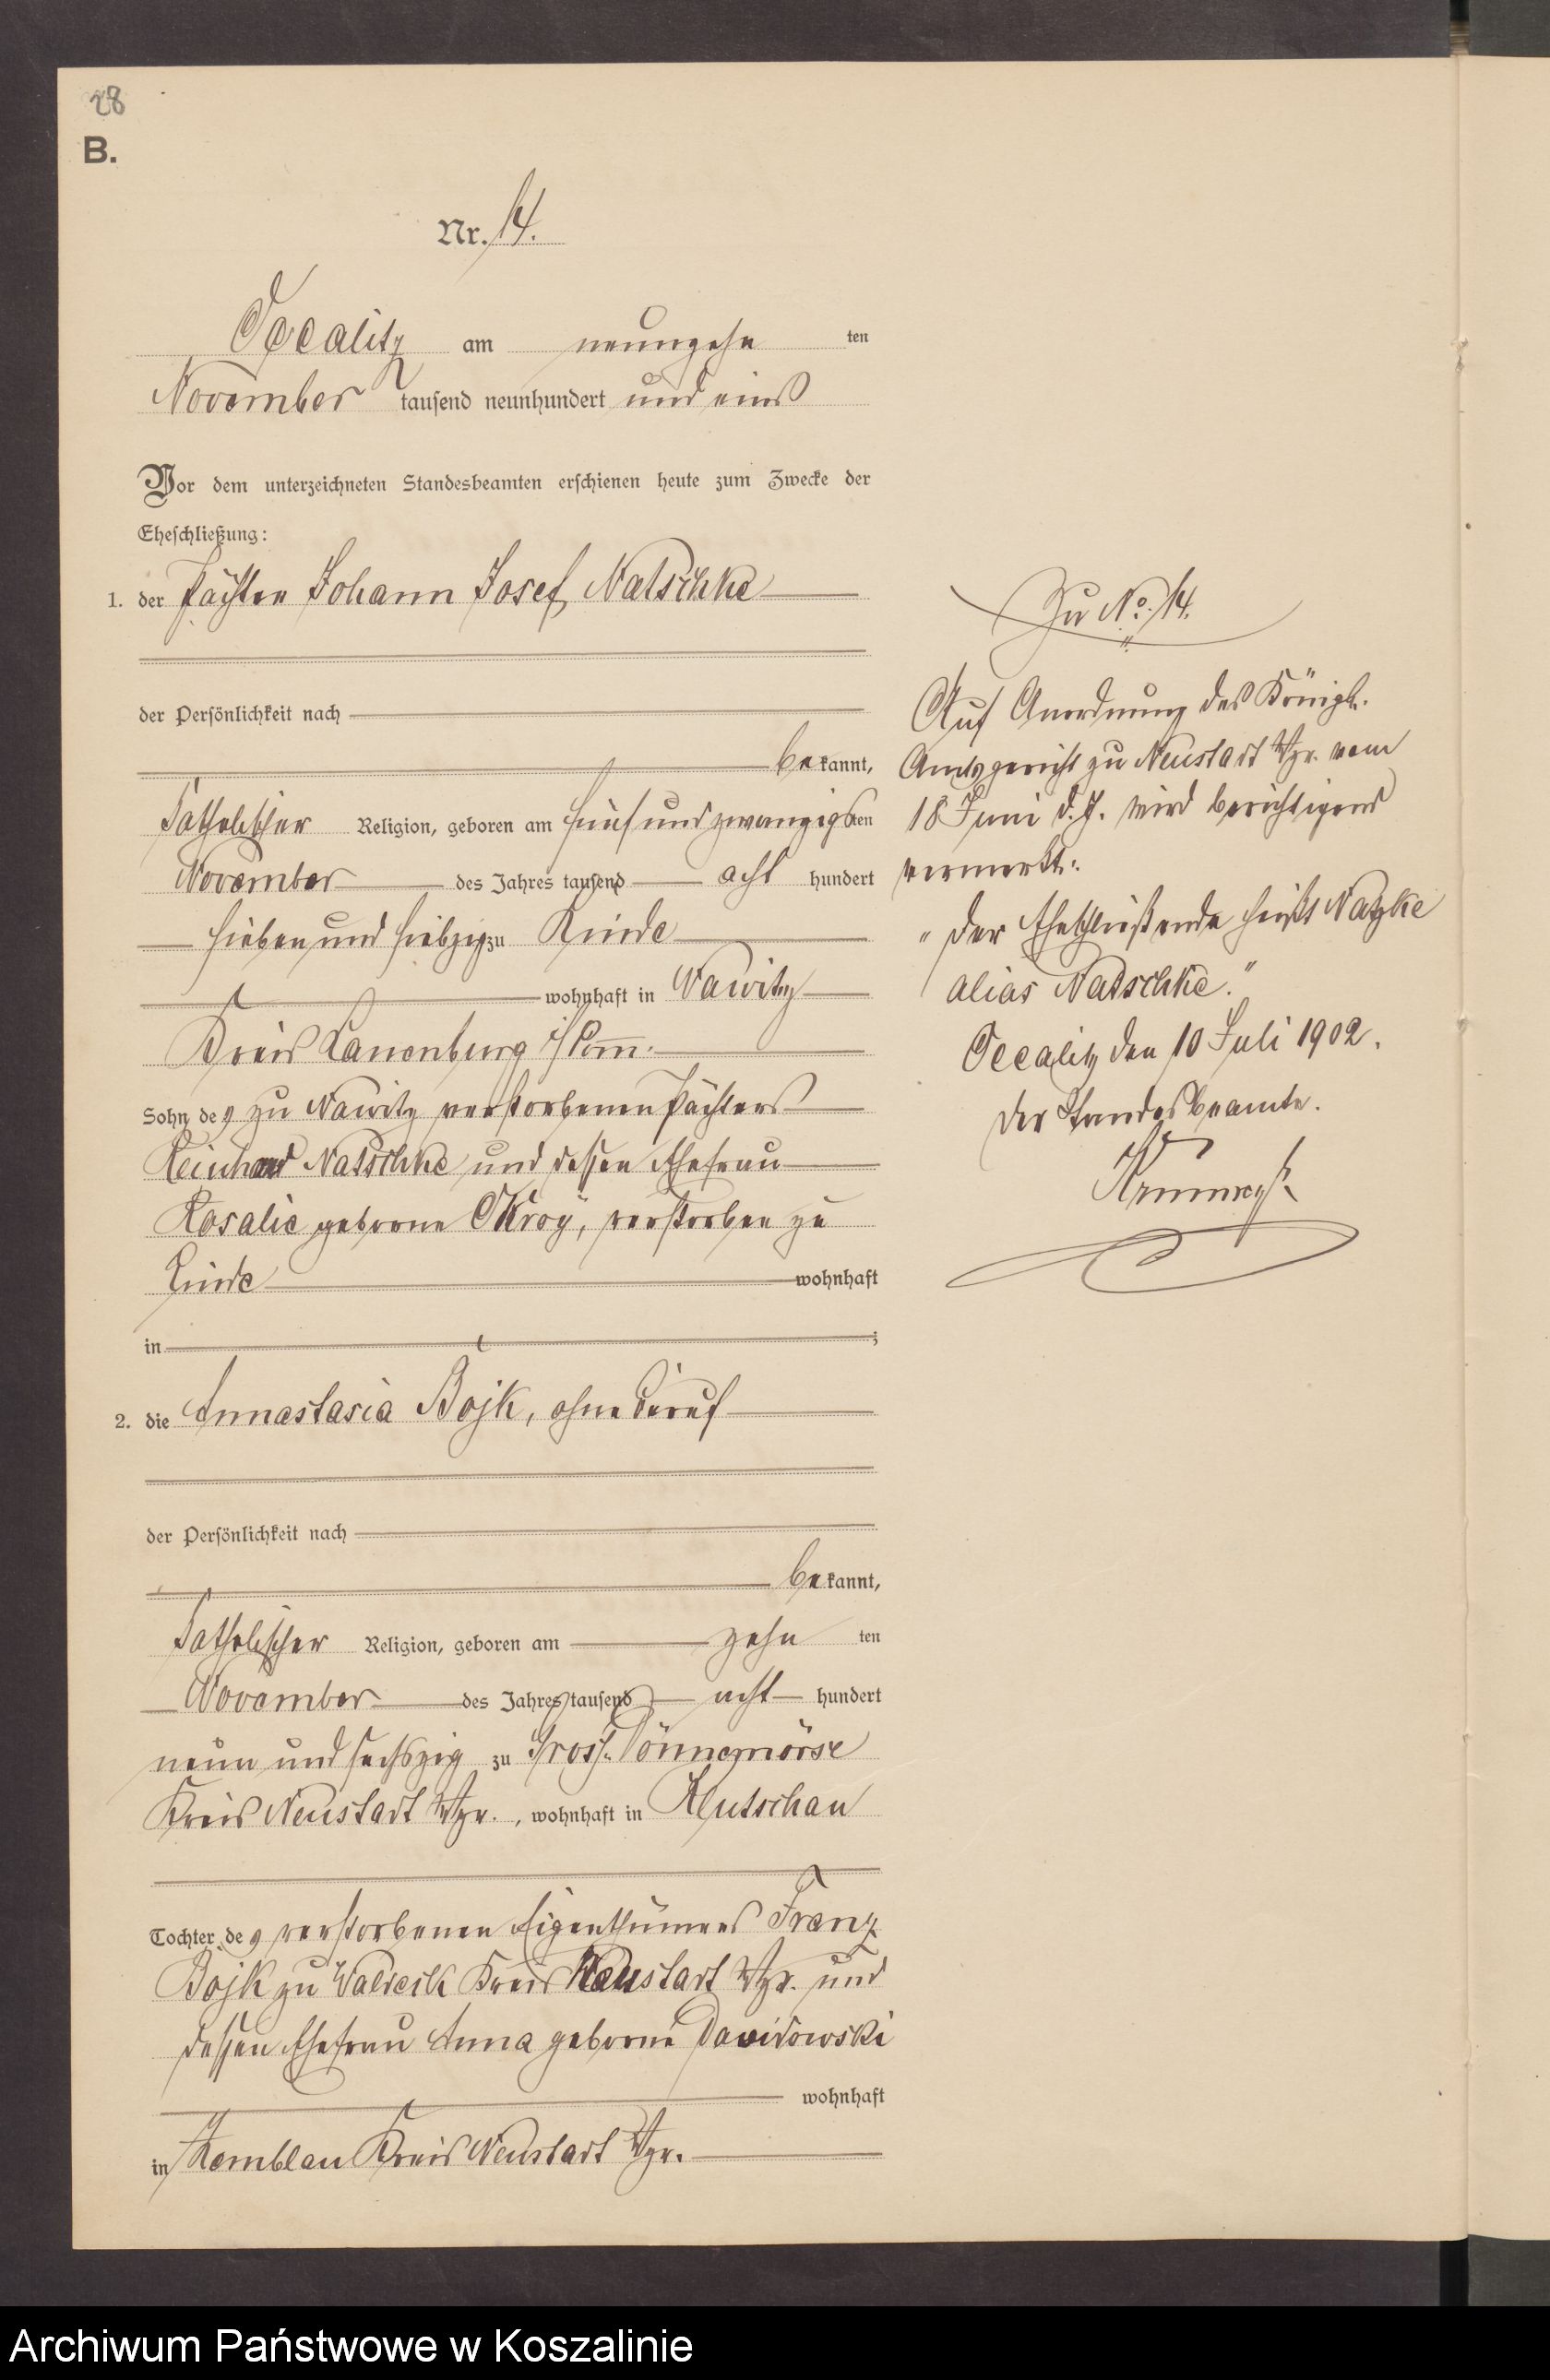 28
B.
Nr. 14.
Occalitz am neunzehn ten
November tausend neunhundert und eins
Vor dem unterzeichneten Standesbeamten erschienen heute zum Zwecke der
Eheschließung:
1. der Pächter Johann Josef Natschke
der Persönlichkeit nach
bekannt,
katholischer Religion, geboren am fünf und zwanzigsten
November des Jahres tausend acht hundert
sieben und siebzig zu Linde
wohnhaft in Nawitz
Kreis Lauenburg i/Pomm.
Sohn des zu Nawitz verstorbenen Pächters
Reinhard Natschke und dessen Ehefrau
Rosalie geborne Okroy, verstorben zu
Linde wohnhaft
in ;
2. die Annastasia Bojk, ohne Beruf
der Persönlichkeit nach
bekannt,
katholischer Religion, geboren am zehn ten
November des Jahres tausend acht hundert
neun und sechszig zu Gross
Kreis Neustadt Wpr., wohnhaft in Klutschau
Tochter des verstorbenen Eigenthümers Franz
Bojk zu Kreis Neustadt Wpr. und
dessen Ehefrau Anna geborne Davidowski
wohnhaft
in Kamblau Kreis Neustadt Wpr.
Zu No. 14.
Auf Anordnung des Königl.
Amtsgericht zu Neustadt Wpr. vom
18 Juni d. J. wird berichtigend
vermerkt:
"Der Eheschließende heißt Natzke
alias Natschke."
Occalitz den 10 Juli 1902.
Der Standesbeamte.
Archiwum Państwowe w Koszalinie